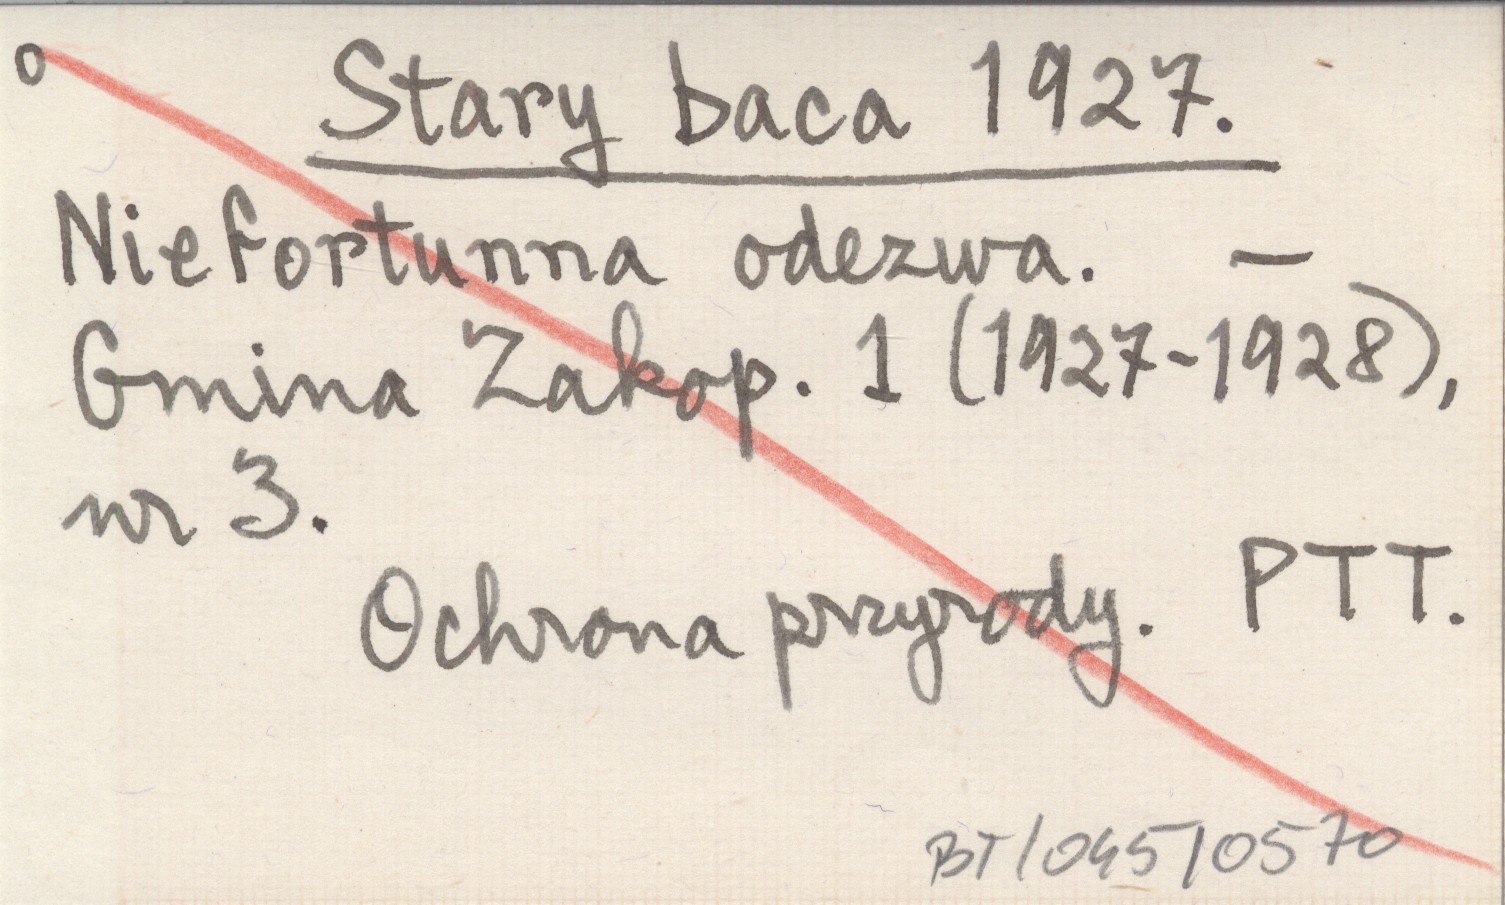 o Stary baca 1927.
Niefortunna odezwa. –
Gmina Zakop. 1 (1927-1928),
nr 3.
Ochrona przyrody. PTT.
BT/045/0570